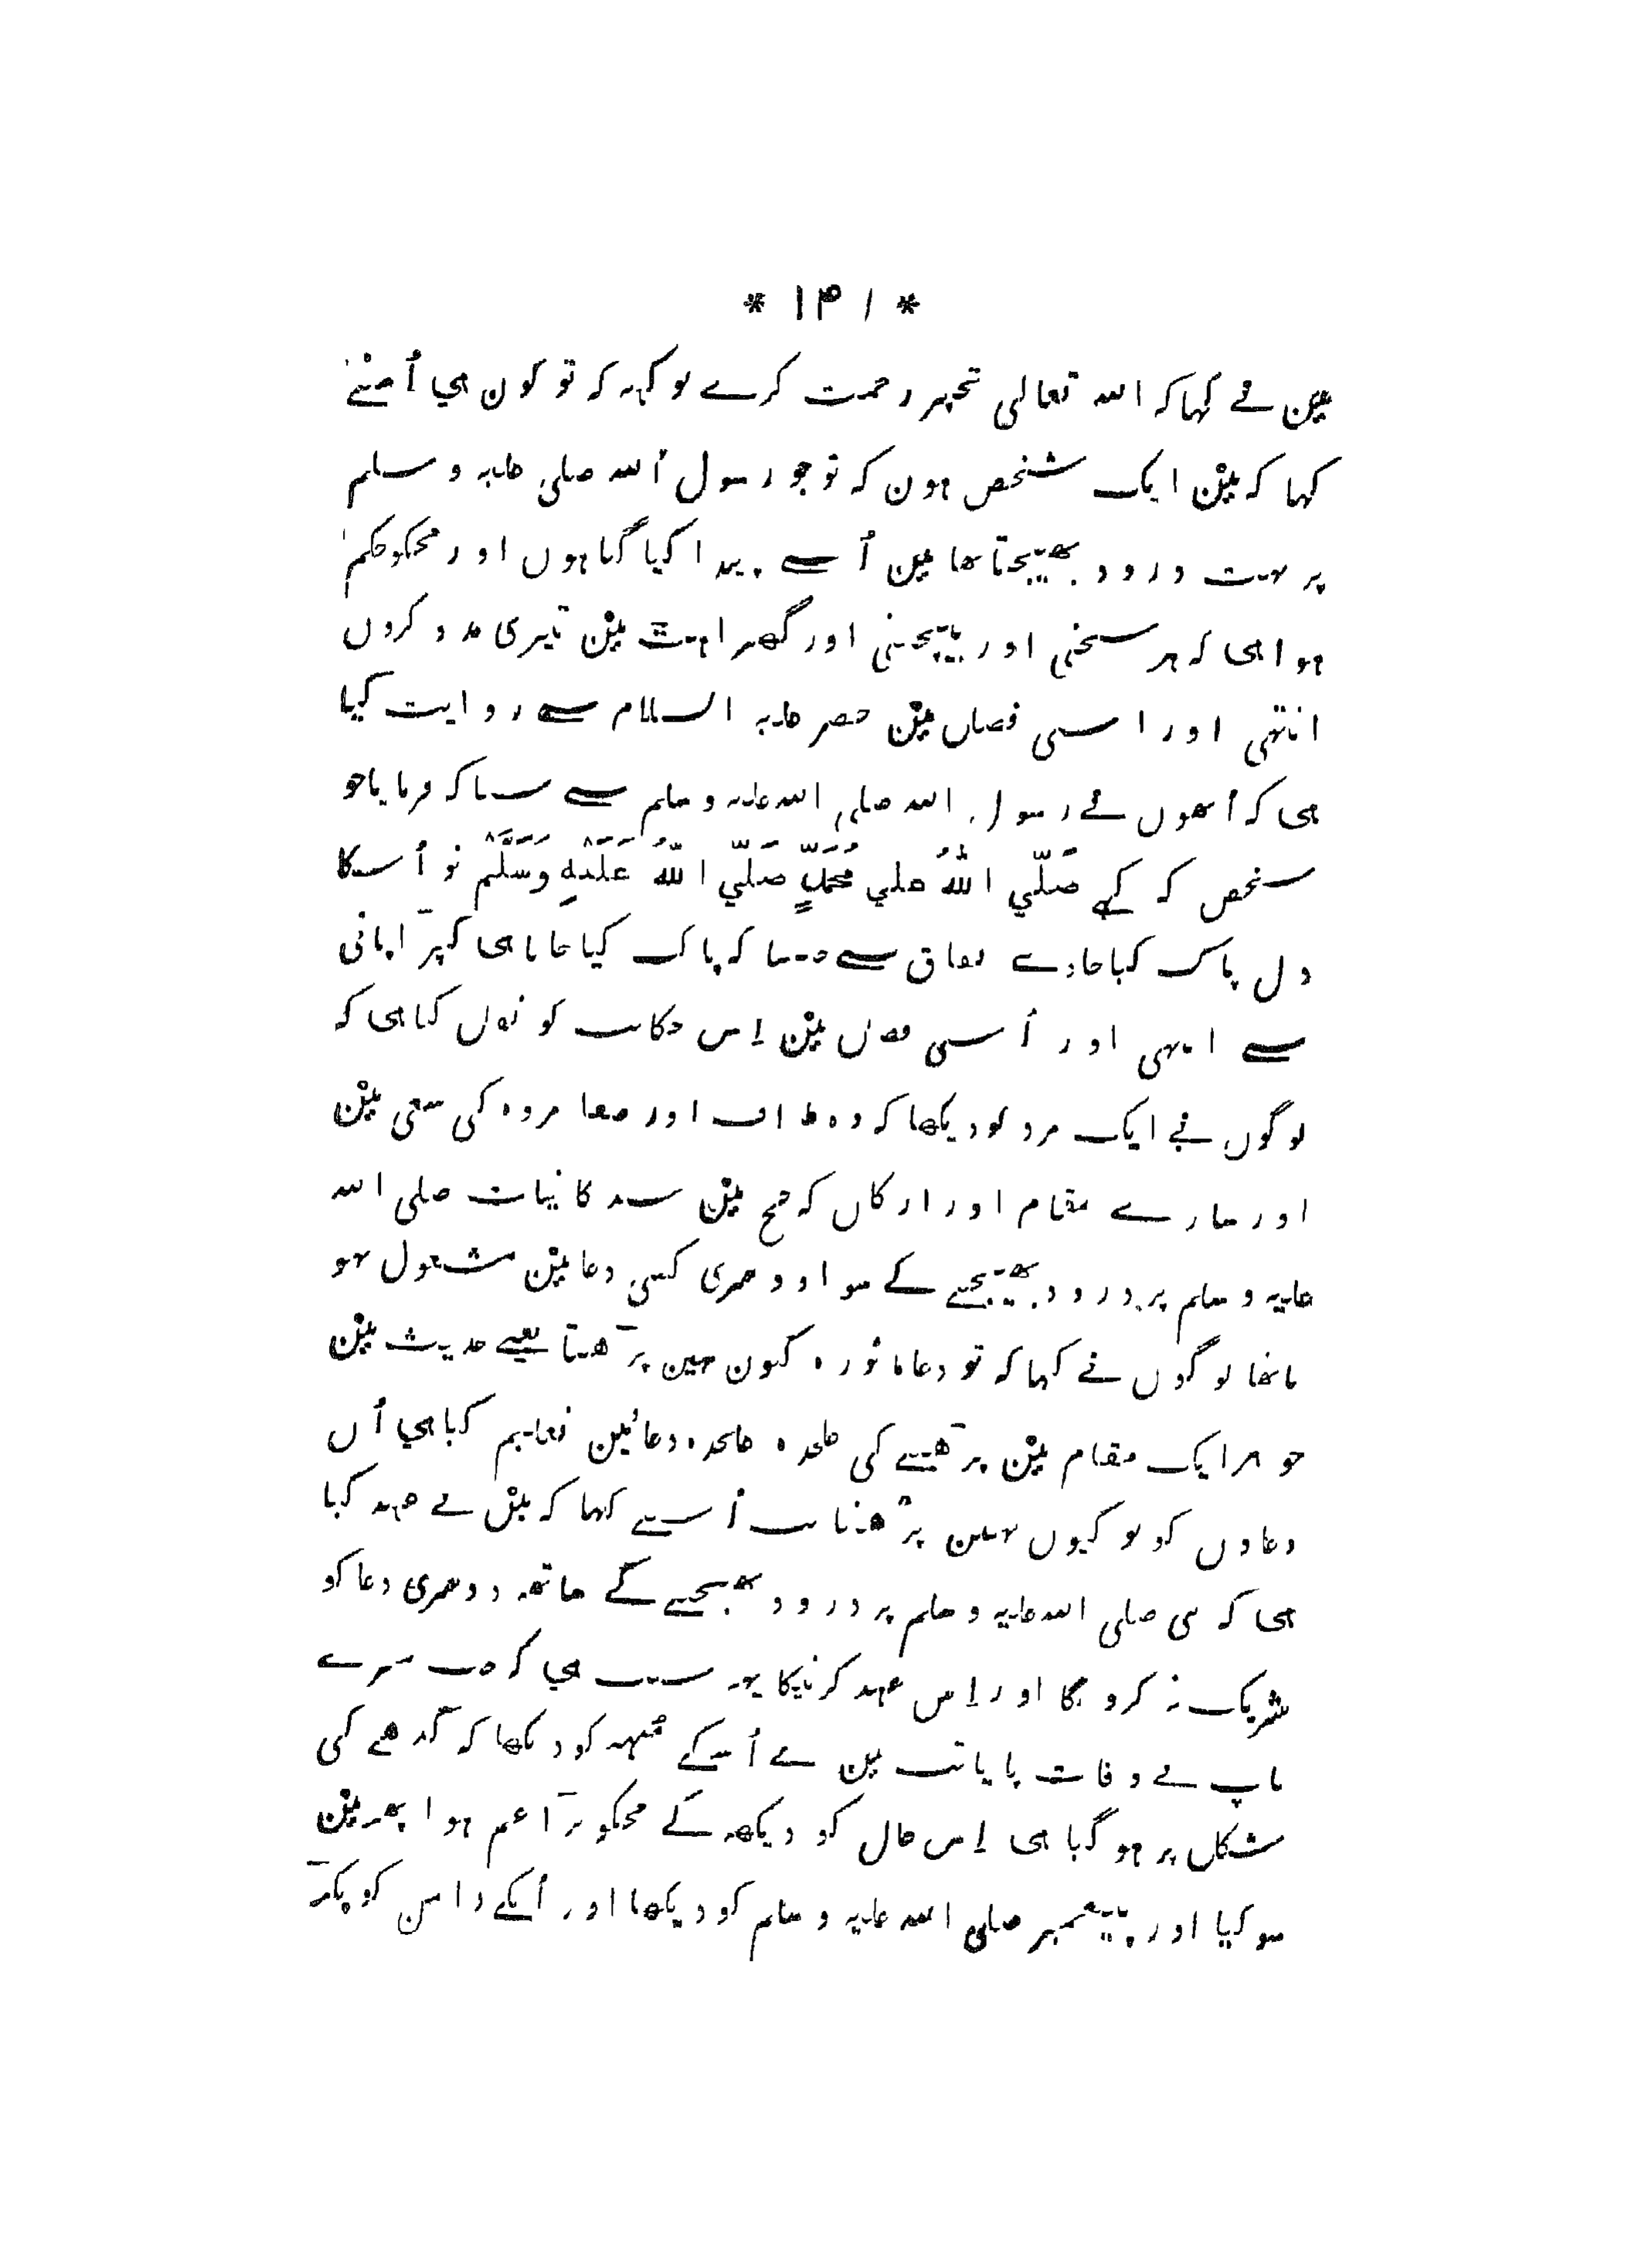 * ۱۴۱ *
مین نے کہا کہ اللہ تعالی تجہپر رحمت کرے تو کہہ کہ تو کون ہی اُسنے
کہا کہ مین ایک شخص ہون کہ تو جو رسول اللہ صلی علیہ و سلم
پر بہت درود بھیجتا تھا مین اُسے پیدا کیا گیا ہوں اور مجکو حکم
ہوا ہی کہ ہر سختی اور بیچینی اور گھبراہت مین تیری مدد کروں
انتہی اور اسی فصل مین خضر علیہ السلام سے روایت کیا
ہی کہ اُنھوں نے رسول اللہ صلی اللہ علیہ و سلم سے سنا کہ فرمایا جو
شخص کہ کہے صَلَّي اللّٰهُ علي مُحَمَّدٍ صَلَّي اللّٰهُ عَلَيْهِ وَسَلَّمْ تو اُسکا
دل پاک کیا جاوے نفاق سے جیسا کہ پاک کیا جاتا ہی کپڑا پانی
سے انتہی اور اُسی فصل مین اِس حکایت کو نقل کیا ہی کہ
لوگوں نے ایک مرد کو دیکھا کہ وہ طواف اور صفا مروہ کی سعی مین
اور سارے مقام اور ارکان کہ حج مین سید کائینات صلی اللہ
علیہ و سلم پر درود بھیجنے کے سوا دوسری کسی دعا مین مشغول نہو
تا تھا لوگوں نے کہا کہ تو دعا ماثورہ کیون نہین پڑھتا یعنے حدیث مین
جو ہر ایک مقام مین پڑھنے کی علحدہ علحدہ دعائین تعلیم کیا ہی اُن
دعاوں کو تو کیوں نہین پڑھتا تب اُسنے کہا کہ مین نے عہد کیا
ہی کہ نبی صلی اللہ علیہ و سلم پر درود بھیجنے کے ساتھہ دوسری دعا کو
شریک نہ کرونگا اور اِس عہد کرنیکا یہہ سبب ہی کہ جب میرے
باپ نے وفات پایا تب مین نے اُسکے مُنہہ کو دیکھا کہ گدھے کی
شکل پر ہو گیا ہی اِس حال کو دیکھہ کے مجکو بڑا غم ہوا پھر مین
سو گیا اور پیغمبر صلی اللہ علیہ و سلم کو دیکھا اور اُنکے دامن کو پکڑ